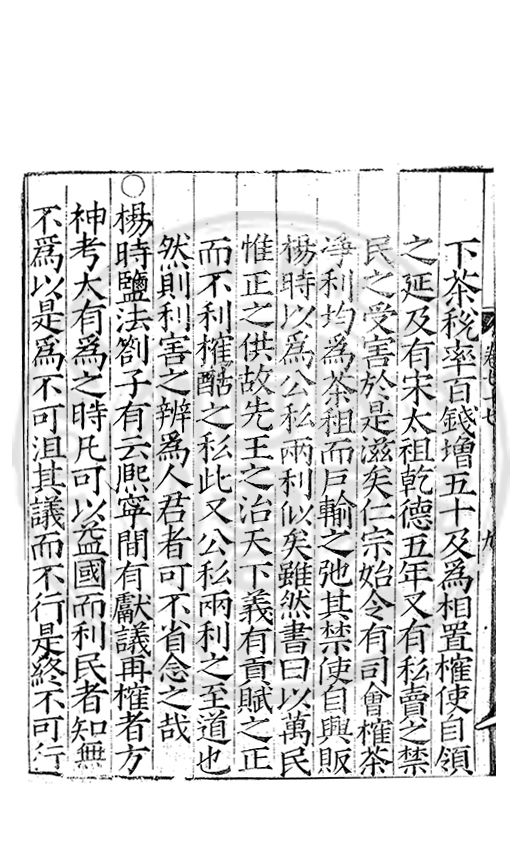 下茶稅率百錢增五十及爲相置榷使自領
之延及有宋太祖乾德五年又有私賣之禁
民之受害於是滋矣仁宗始令有司會榷茶
淨利均爲茶租而戶輸之弛其禁使自興販
楊時以爲公私兩利似矣雖然書曰以萬民
惟正之供故先王之治天下義有貢賦之正
而不利榷酤之私此又公私兩利之至道也
然則利害之辨爲人君者可不省念之哉
○楊時鹽法劄子有云熈寧間有獻議再榷者方
神考大有爲之時凡可以益國而利民者知無
不爲以是爲不可沮其議而不行是終不可行